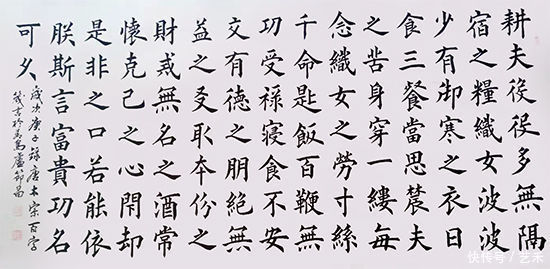 耕夫役役多無隅
宿之糧織女波波
少有御寒之衣日
食三餐當思農夫
之苦身穿一縷每
念織女之勞寸絲
千命匙飯百鞭無
功受禄寢食不安
交有德之朋絕無
益之友取夲份之
財戒無名之酒常
懷克己之心閉却
是非之口若能依
朕斯言富貴功名
可久
歲次庚子錄唐太宗百字
快传号/艺禾